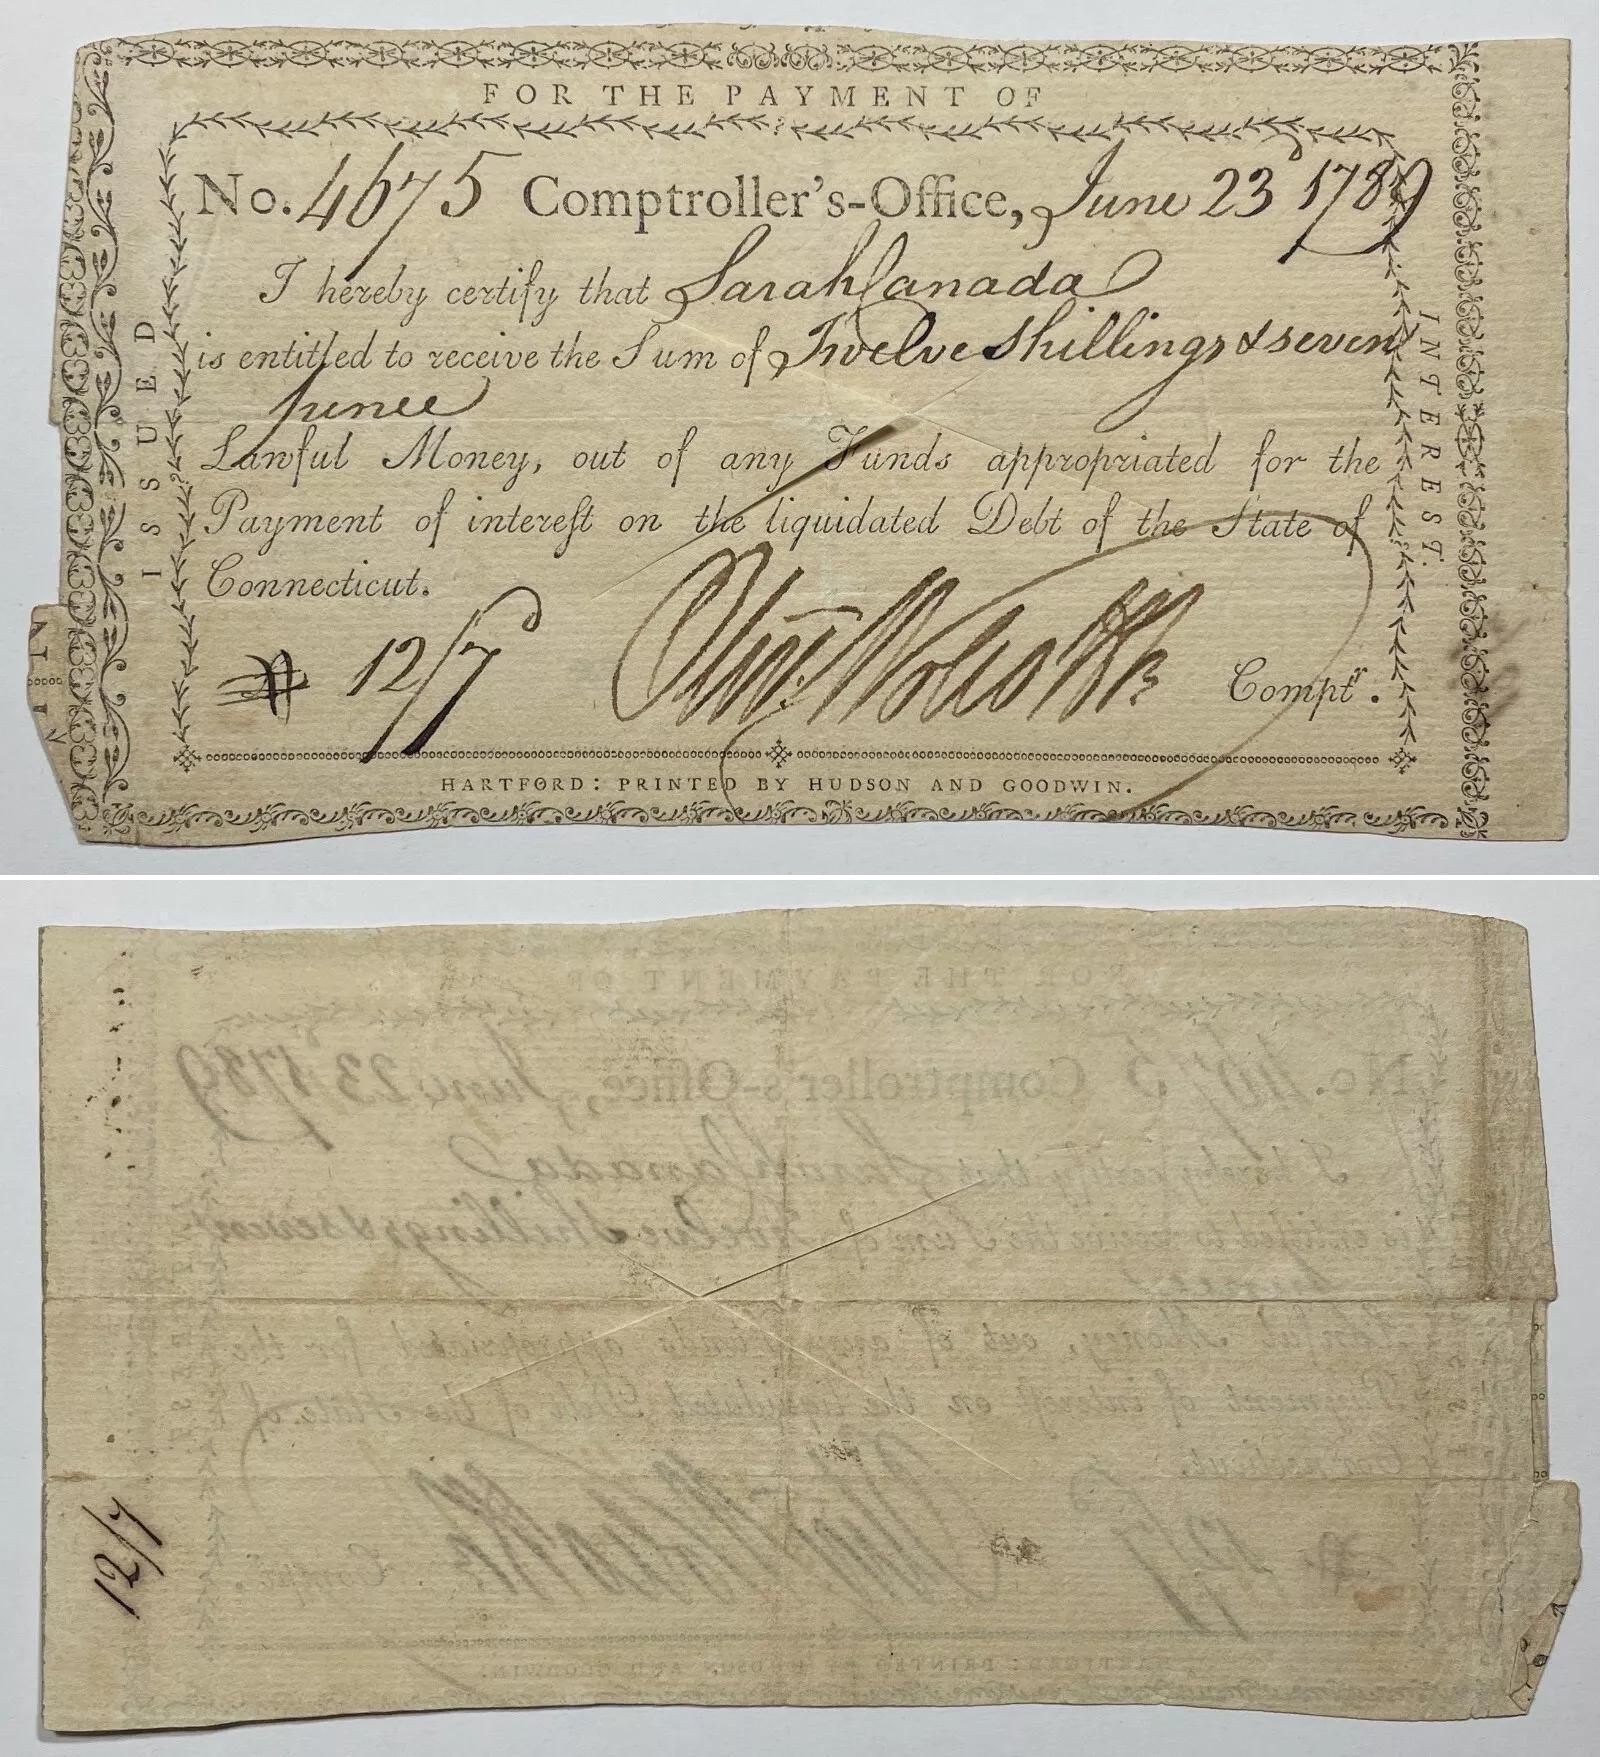 FOR THE PAYMENT OF
No. 4675 Comptroller's-Office, June 23d 1789
I hereby certify that Sarah Canada
is entitled to receive the Sum of Twelve Shillings & seven
pence
Lawful Money, out of any Funds appropriated for the
Payment of intereſt on the liquidated Debt of the State of
Connecticut.
12/7d Olivr. Wolcott Jr Comptr.
HARTFORD: PRINTED BY HUDSON AND GOODWIN.
ISSUED
INTEREST.
12/7